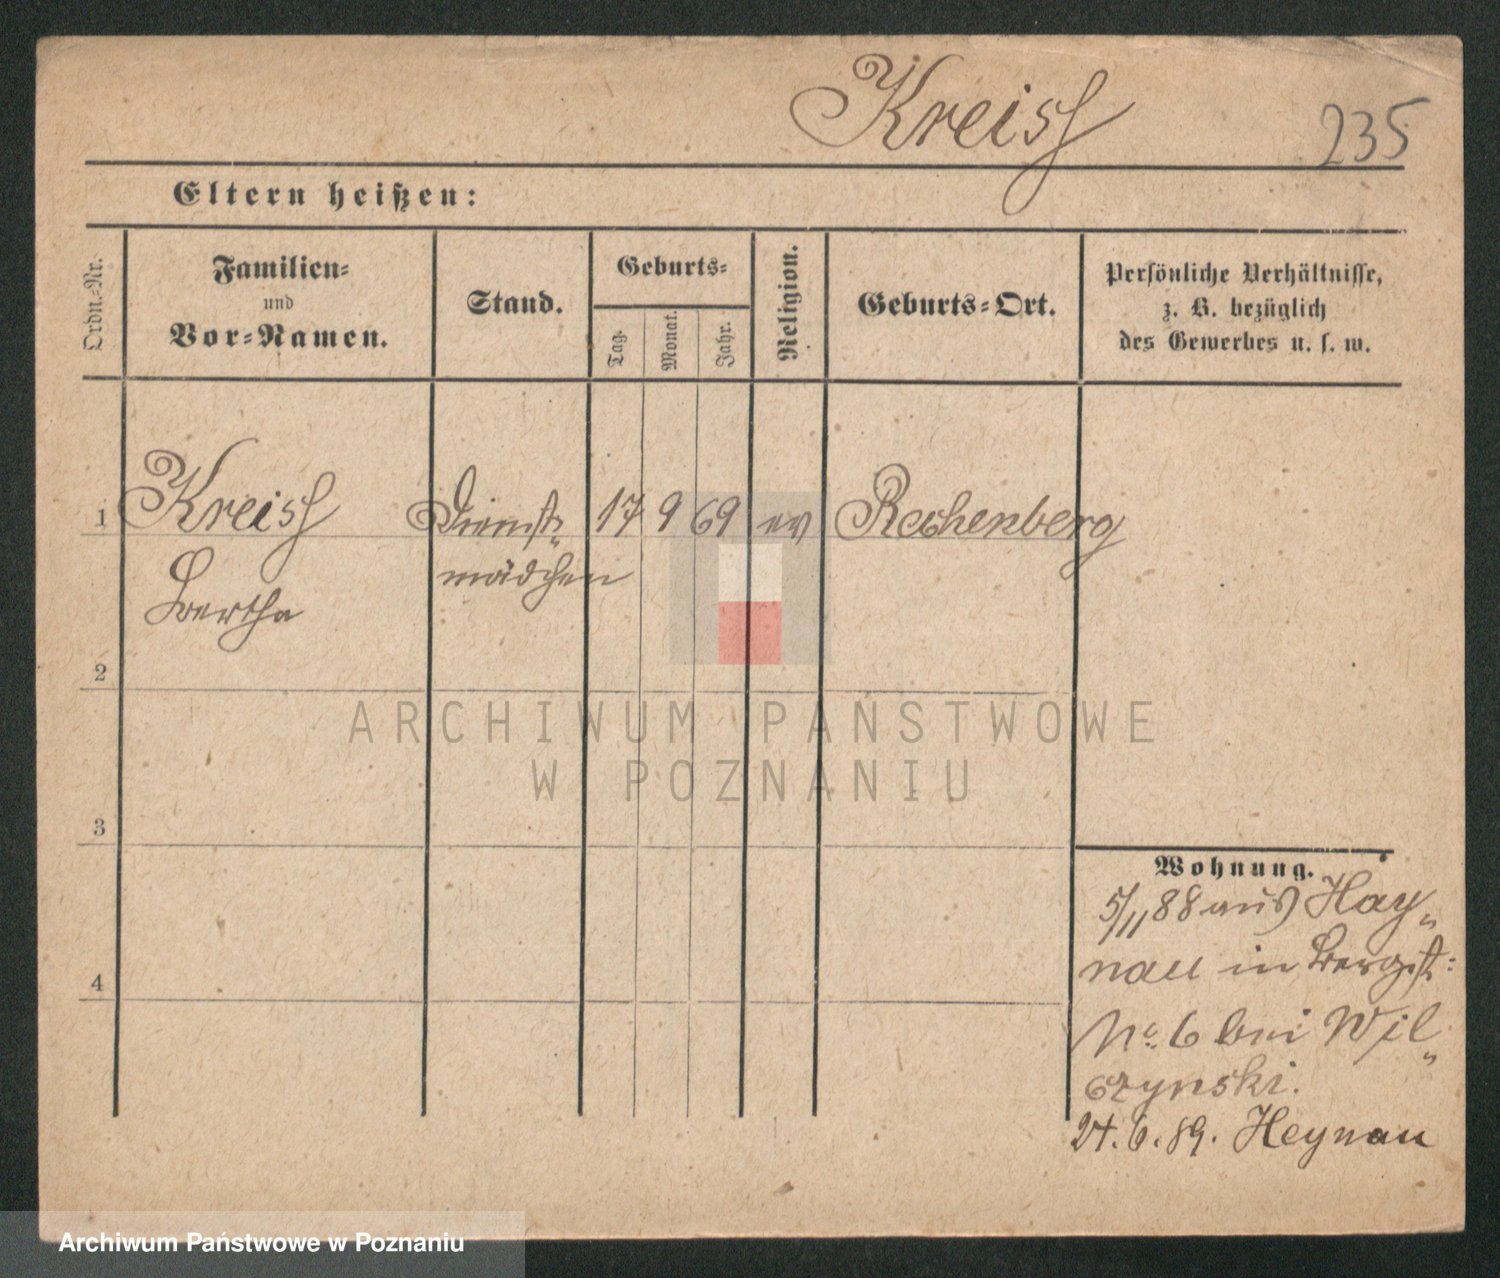 Kreisch
235
Eltern heißen:
Ordn.-Nr.
Familien-
und
Vor-Namen.
Stand.
Geburts-
Tag.
Monat.
Jahr.
Religion.
Geburts-Ort.
Persönliche Verhältnisse,
z. B. bezüglich
des Gewerbes u. s. w.
1
Kreisch
Dienst-
17
9
69
ev
Rechenberg
Bertha
mädchen
2
ARCHIWUM PAŃSTWOWE
W POZNANIU
3
Wohnung.
5/11 88 aus Hay„
nau in Bergst:
No. 6 bei Wil„
czynski.
4
24.6.89. Heynau
Archiwum Państwowe w Poznaniu